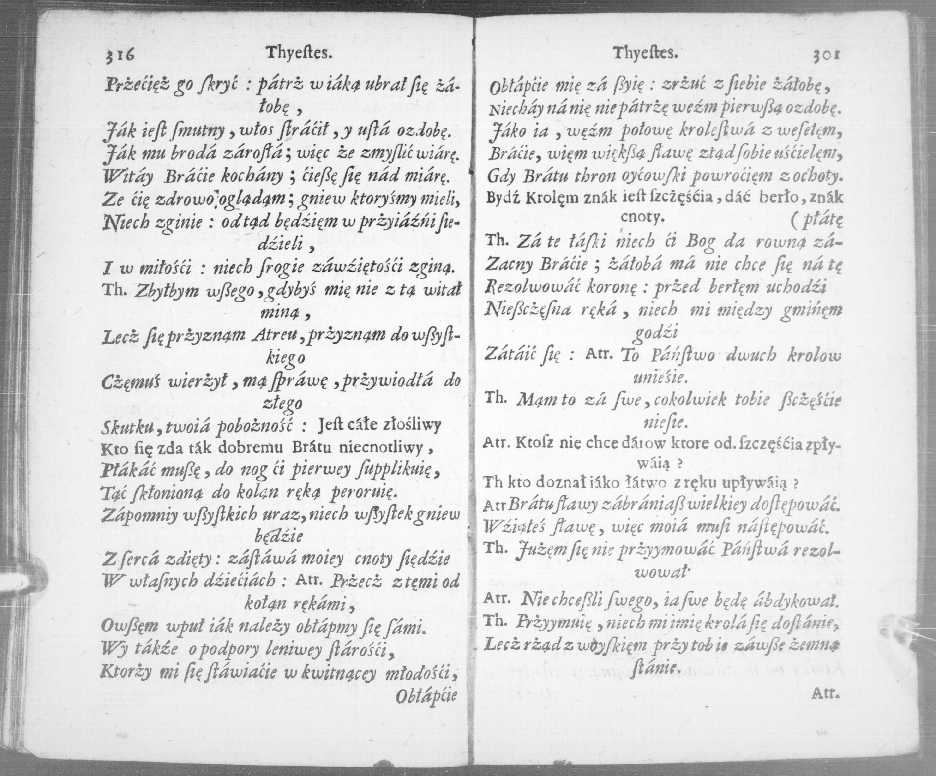 316 Thyestes.
Przećięż go skryć : pátrż w iáką ubrał się żá-
łobę ,
Ják iest smutny , włos stráćił , y ustá ozdobę.
Ják mu brodá zárostá ; więc że zmyslić wiárę.
Witáy Bráćie kochány ; ćieszę się nád miárę.
Ze ćię zdrowo oglądąm ; gniew ktoryśmy mieli,
Niech zginie : odtąd będźięm w przyiáźńi sie-
dźieli ,
I w miłośći : niech srogie záwźiętośći zginą.
Th. Zbyłbym wszego , gdybyś mię nie z tą witał
miną ,
Lecż się przyznąm Atreu , przyznąm do wszyst-
kiego
Cżęmuś wierżył , mą spráwę , przywiodłá do
złego
Skutku , twoiá pobożność : Jest cáłe złośliwy
Kto się zda ták dobremu Brátu niecnotliwy ,
Płákáć muszę , do nog ći pierwey supplikuię ,
Tąć skłonioną do koląn ręką peroruię.
Zápomniy wszystkich uraz , niech wszystek gniew
będźie
Z sercá zdięty : zástáwá moiey cnoty siędźie
W włásnych dźiećiách : Atr. Przecż z tęmi od
koląn rękámi ,
Owszęm wpuł iák należy obłápmy się sámi.
Wy tákże o podpory leniwey stárośći ,
Ktorży mi się stáwiaćie w kwitnącey młodośći ,
Obłápćie
Thyestes. 301
Obłápćie mię zá szyię : zrżuć z siebie żáłobę ,
Niecháy ná nię nie pátrżę weźm pierwszą ozdobę.
Jáko ia , węźm połowę krolęstwá z wesełęm,
Bráćie, więm większą sławę ztąd sobie uśćielęm,
Gdy Brátu thron oycowski powroćięm z ochoty.
Bydź Krolęm znák iest szcżęśćia , dáć berło, znák
cnoty. ( płátę
Th. Zá te łáski niech ći Bog da rowną zá-
Zacny Bráćie ; żáłobá má nie chce się ná tę
Rezolwowáć koronę : przed berłęm uchodźi
Nieszcżęsna ręká , niech mi między gmińęm
godźi
Zátáić się : Atr. To Páństwo dwuch krolow
unieśie.
Th. Mąm to zá swe , cokolwiek tobie szcżęśćie
niesie.
Atr. Ktosz nie chce dárow ktore od szczęśćia zpły-
wáią ?
Th kto doznał iáko łátwo z ręku upływáią ?
Atr Brátu sławy zábrániasz wielkiey dostępowáć.
Wźiąłeś sławę, więc moiá musi nástępowáć.
Th. Jużęm się nie przyymowáć Páństwá rezol-
wował
Atr. Nie chceszli swego, ia swe będę ábdykował.
Th. Przyymuię , niech mi imię krolá się dostánie,
Lecż rżąd z woyskięm przy tobie záwsze żemną
stánie.
Atr.